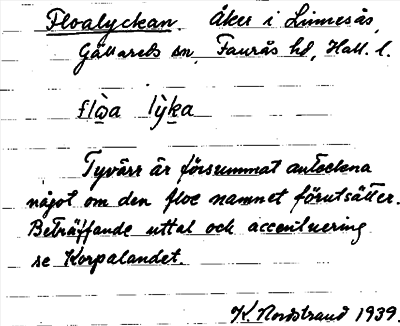 Floalyckan. Åker i Linnesås,
Gällareds sn, Faurås hd, Hall. l.
flo̲a lỳka
Tyvärr är försummat anteckna
något om den floe namnet förutsätter.
Beträffande uttal och accentuering
se Korpalandet.
K. Nordstrand 1939.